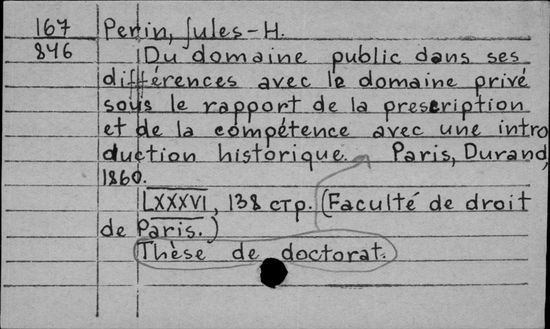 167 Perin, Jules-H.
846 Du domaine public dans ses
différences avec le domaine privé
sous le rapport de la prescription
et de la compétence avec une intro
duction historique. Paris, Durand,
1860.
LXXXVI, 138 стр. (Faculté de droit
de Paris.)
Thèse de doctorat.